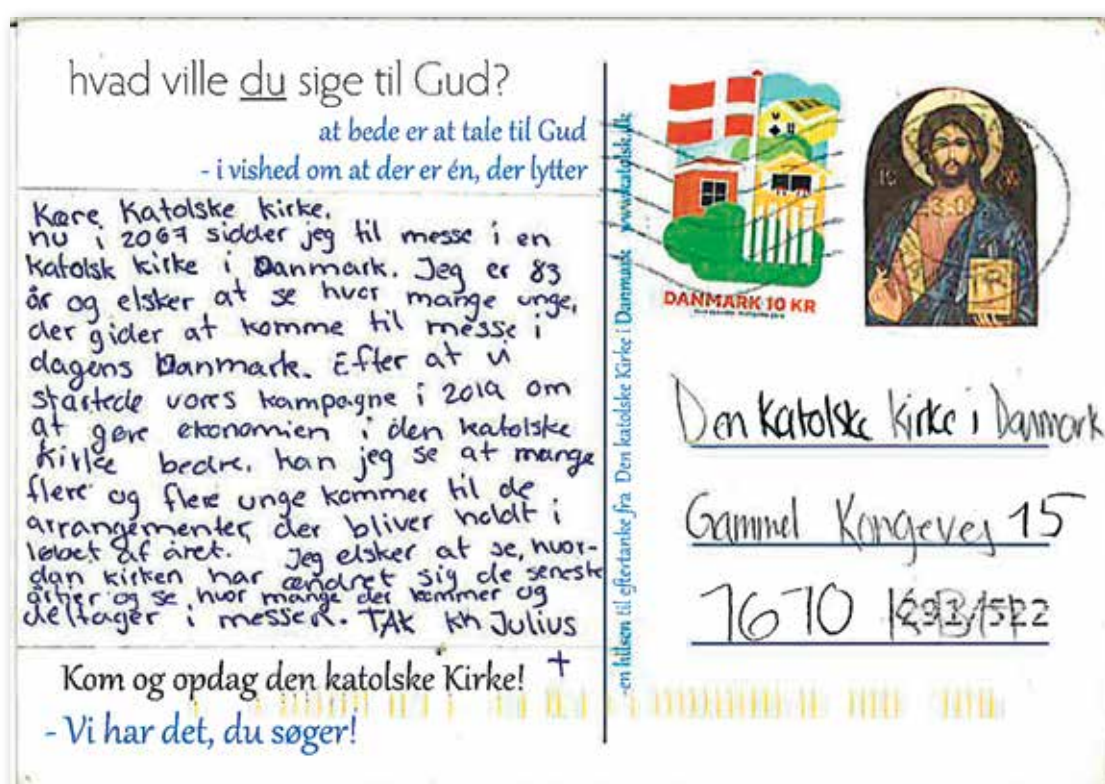 hvad ville du sige til Gud?
at bede er at tale til Gud
- i vished om at der er én, der lytter
Kære Katolske kirke.
nu i 2067 sidder jeg til messe i en
katolsk kirke i Danmark. Jeg er 83
år og elsker at se hvor mange unge,
der gider at komme til messe i
dagens Danmark. Efter at vi
startede vores kampagne i 2019 om
at gøre økonomien i den katolske
Kirke bedre, kan jeg se at mange
flere og flere unge kommer til de
arrangementer, der bliver holdt i
løbet af året. Jeg elsker at se, hvor-
dan kirken har ændret sig de seneste
årtier og se, hvor mange der kommer og
deltager i messen. TAK kh Julius
+
Kom og opdag den katolske Kirke!
- Vi har det, du søger!
-en hilsen til eftertanke fra Den katolske Kirke i Danmark www.katolsk.dk
DANMARK 10 KR
Den katolske kirke i Danmark
Gammel Kongevej 15
1610